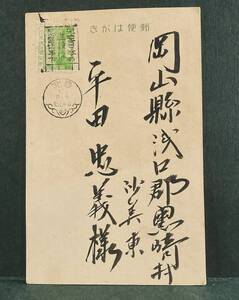 郵便はがき
岡山縣浅口郡黒崎村
沙美東
平田忠義様